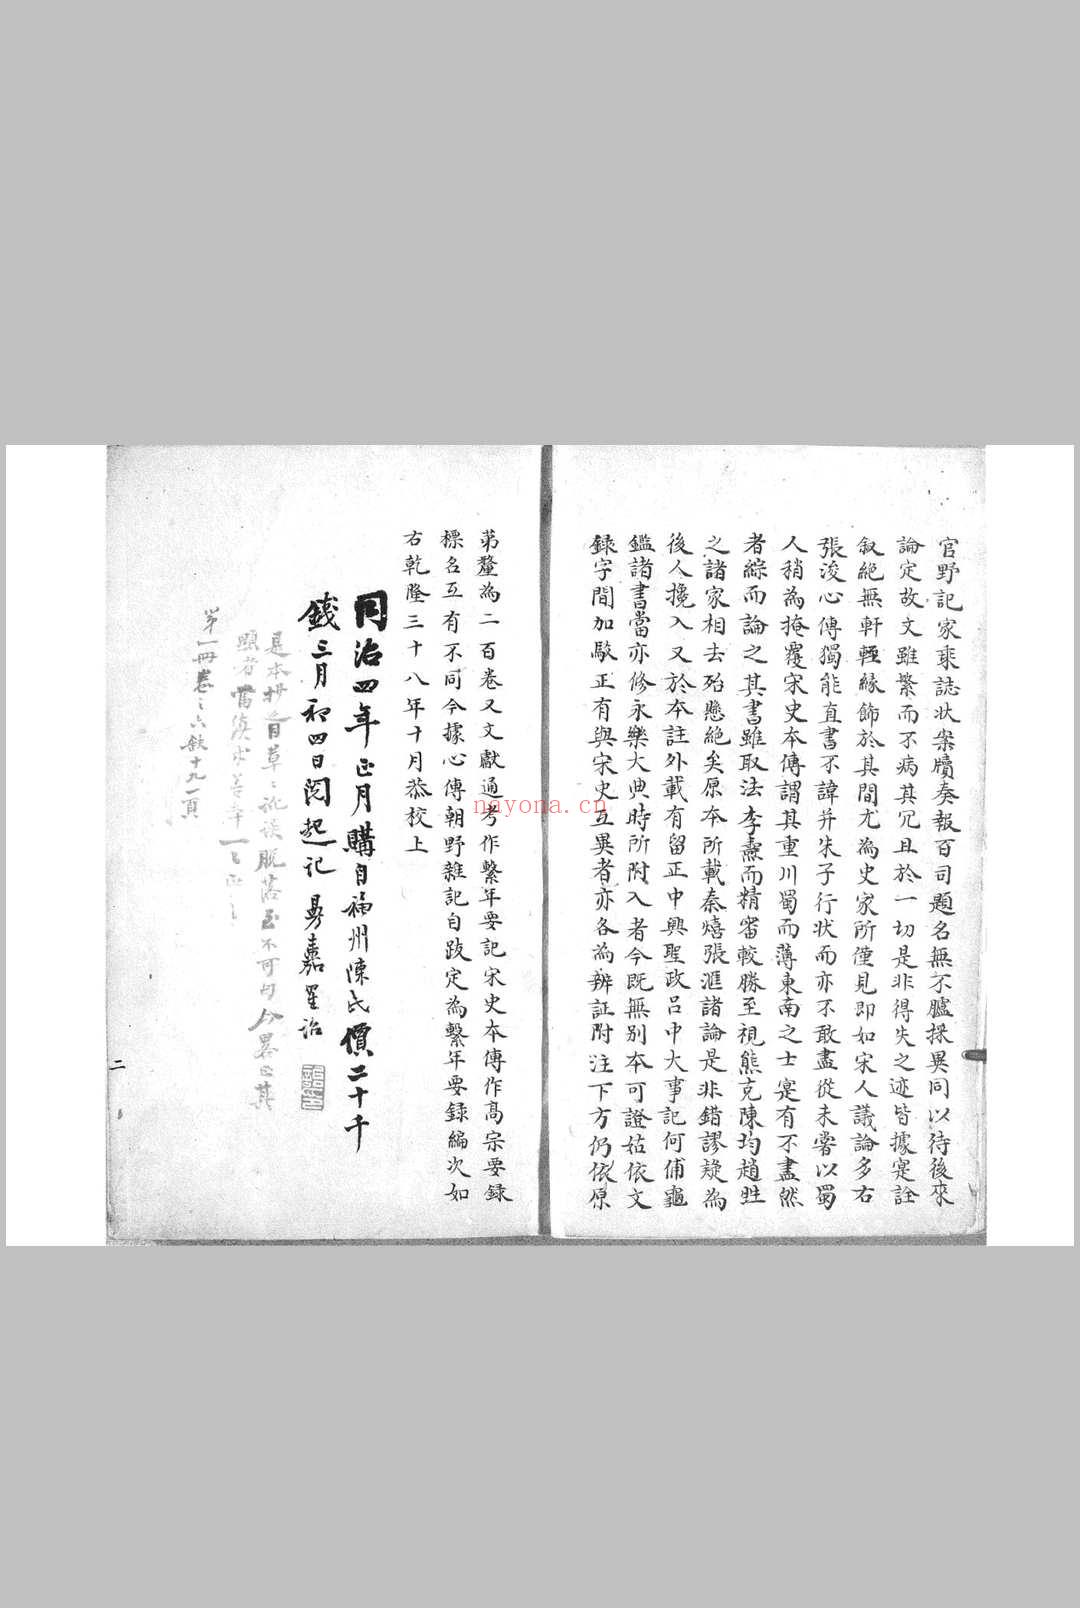 官野記家乘誌狀案牘奏報百司題名無不臚採異同以待後來
論定故文雖繁而不病其冗且於一切是非得失之迹皆據寔詮
叙絕無軒輊緣飾於其間尤為史家所僅見即如宋人議論多右
張浚心傳獨能直書不諱并朱子行狀而亦不敢盡從未嘗以蜀
人稍為掩覆宋史本傳謂其重川蜀而薄東南之士寔有不盡然
者綜而論之其書雖取法李燾而精審較勝至視熊克陳均趙甡
之諸家相去殆懸絕矣原本所載秦熺張滙諸論是非錯謬疑為
後人攙入又於本註外載有留正中興聖政呂中大事記何俌龜
鑑諸書當亦修永樂大典時所附入者今既無別本可證姑依文
録字間加駁正有與宋史互異者亦各為辨証附注下方仍依原
第釐為二百卷又文獻通考作繫年要記宋史本傳作高宗要録
標名互有不同今據心傳朝野雜記自跋定為繫年要録編次如
右乾隆三十八年十月恭校上
同治四年正月購自福州陳氏價二十千
錢三月初四日閱起記
是本抄
脫落至不可句今畧正其
顯者當
第一冊卷之六缺十九一頁
二
nayona.cn